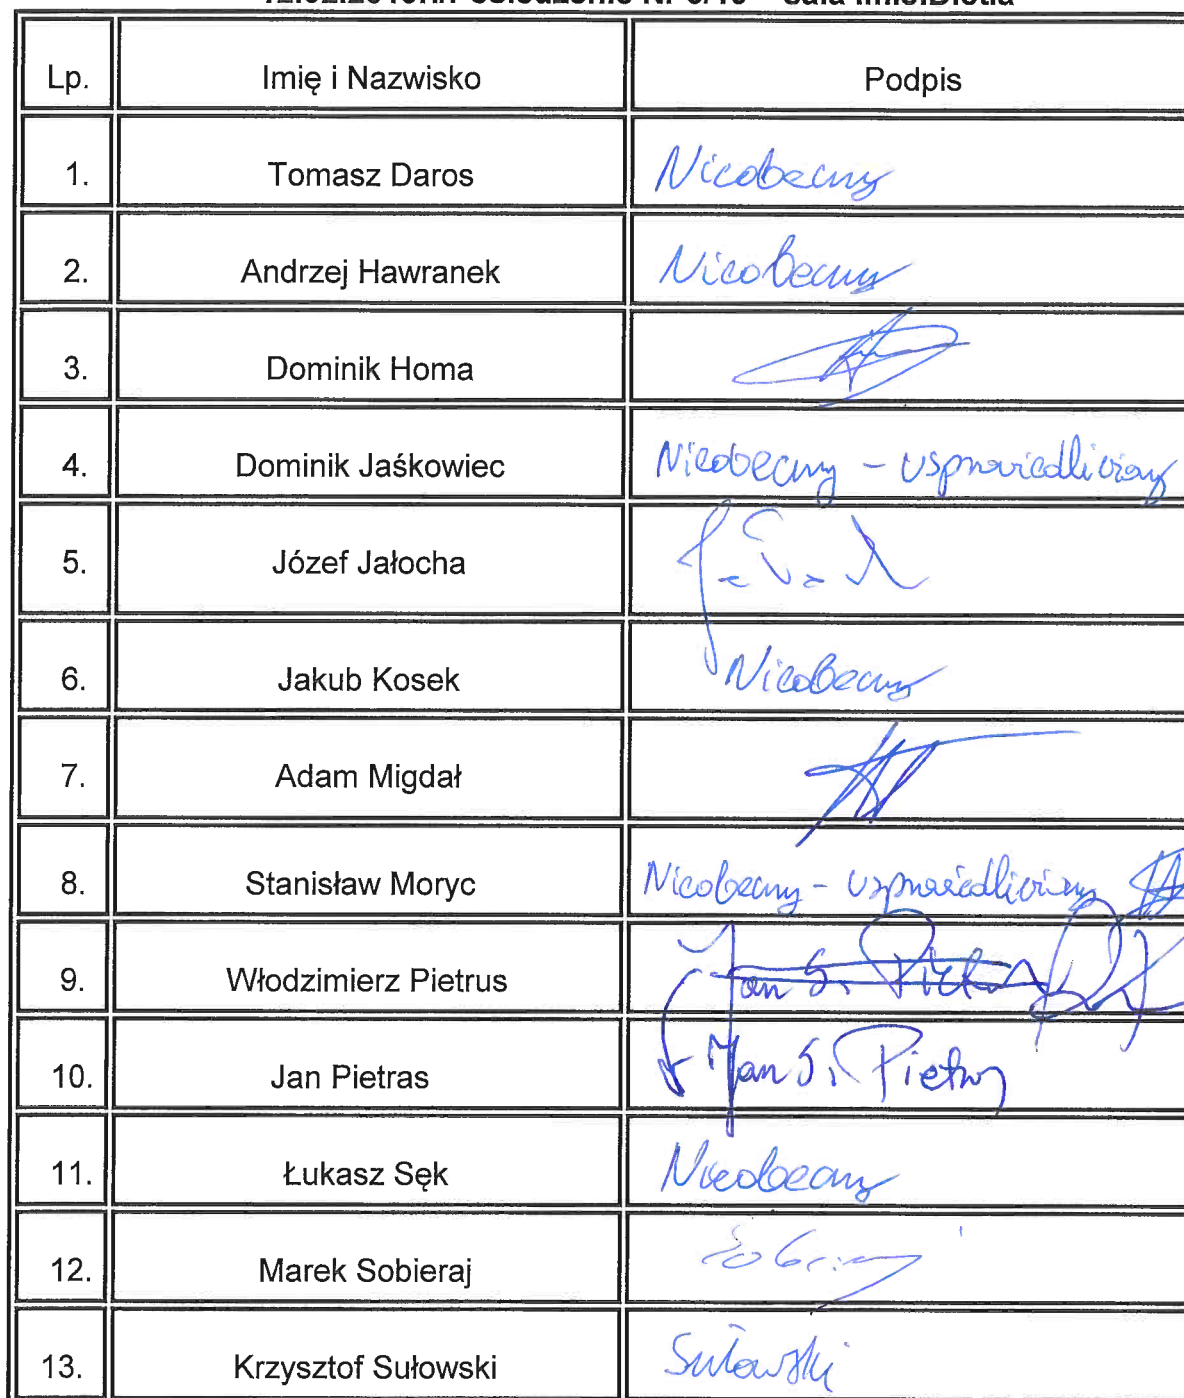 Lp. Imię i Nazwisko Podpis
1. Tomasz Daros Nieobecny
2. Andrzej Hawranek Nieobecny
3. Dominik Homa
4. Dominik Jaśkowiec Nieobecny - usprawiedliwiony
5. Józef Jałocha
6. Jakub Kosek Nieobecny
7. Adam Migdał
8. Stanisław Moryc Nieobecny - usprawiedliwiony
9. Włodzimierz Pietrus Jan S. Pietras
10. Jan Pietras Jan S. Pietras
11. Łukasz Sęk Nieobecny
12. Marek Sobieraj Sobieraj
13. Krzysztof Sułowski Sułowski